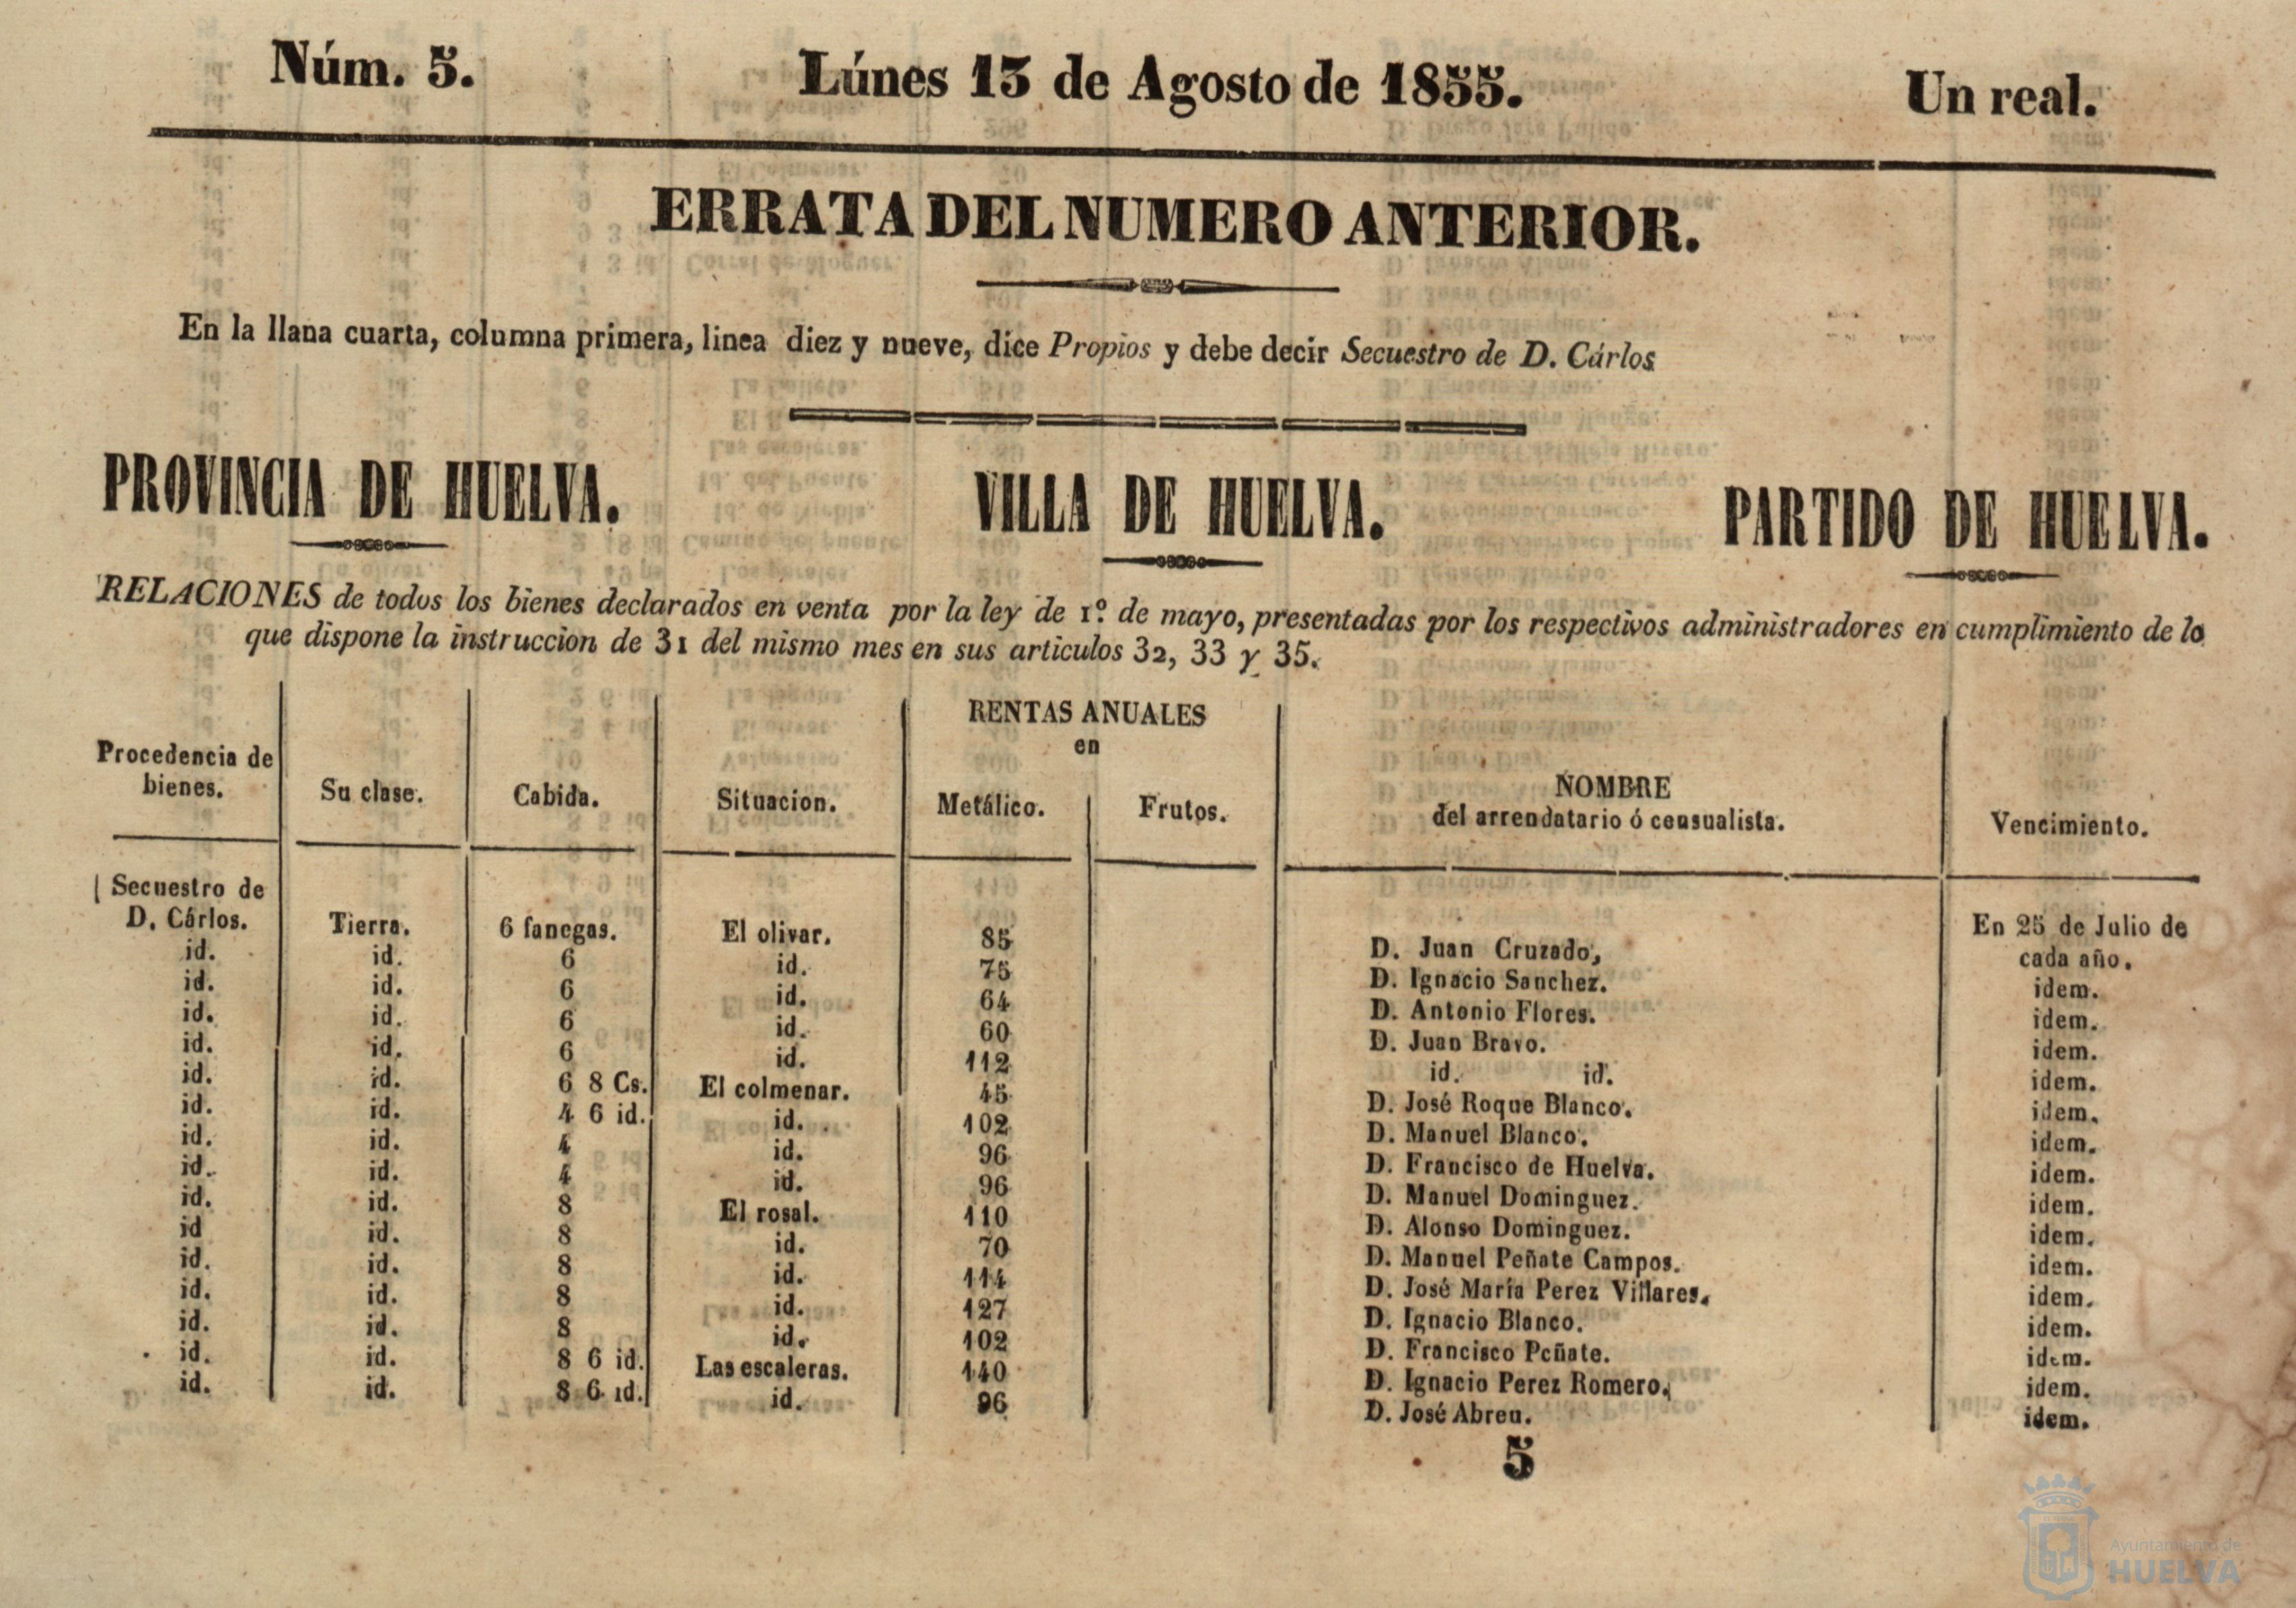 Núm. 5. Lúnes 13 de Agosto de 1855. Un real.
ERRATA DEL NUMERO ANTERIOR.
En la llana cuarta, columna primera, linea diez y nueve, dice Propios y debe decir Secuestro de D. Cárlos
PROVINCIA DE HUELVA. VILLA DE HUELVA. PARTIDO DE HUELVA.
RELACIONES de todos los bienes declarados en venta por la ley de 1º. de mayo, presentadas por los respectivos administradores en cumplimiento de lo
que dispone la instruccion de 31 del mismo mes en sus articulos 32, 33 y 35.
RENTAS ANUALES
en
Procedencia de
bienes. Su clase. Cabida. Situacion. Metálico. Frutos. NOMBRE
del arrendatario ó censualista. Vencimiento.
Secuestro de En 25 de Julio de
D. Cárlos. Tierra. 6 fanegas. El olivar. 85 D. Juan Cruzado, cada año.
id. id. 6 id. 75 D. Ignacio Sanchez. idem.
id. id. 6 id. 64 D. Antonio Flores. idem.
id. id. 6 id. 60 D. Juan Bravo. idem.
id. id. 6 id. 112 id. id. idem.
id. id. 6 8 Cs. El colmenar. 45 D. José Roque Blanco. idem.
id. id. 4 6 id. id. 102 D. Manuel Blanco. idem.
id. id. 4 id. 96 D. Francisco de Huelva. idem.
id. id. 4 id. 96 D. Manuel Dominguez. idem.
id. id. 8 El rosal. 110 D. Alonso Dominguez. idem.
id id. 8 id. 70 D. Manuel Peñate Campos. idem.
id. id. 8 id. 114 D. José María Perez Villares. idem.
id. id. 8 id. 127 D. Ignacio Blanco. idem.
id. id. 8 id. 102 D. Francisco Peñate. idem.
id. id. 8 6 id. Las escaleras. 140 D. Ignacio Perez Romero. idem.
id. id. 8 6 id. id. 96 D. José Abreu. idem.
5
Ayuntamiento de
HUELVA